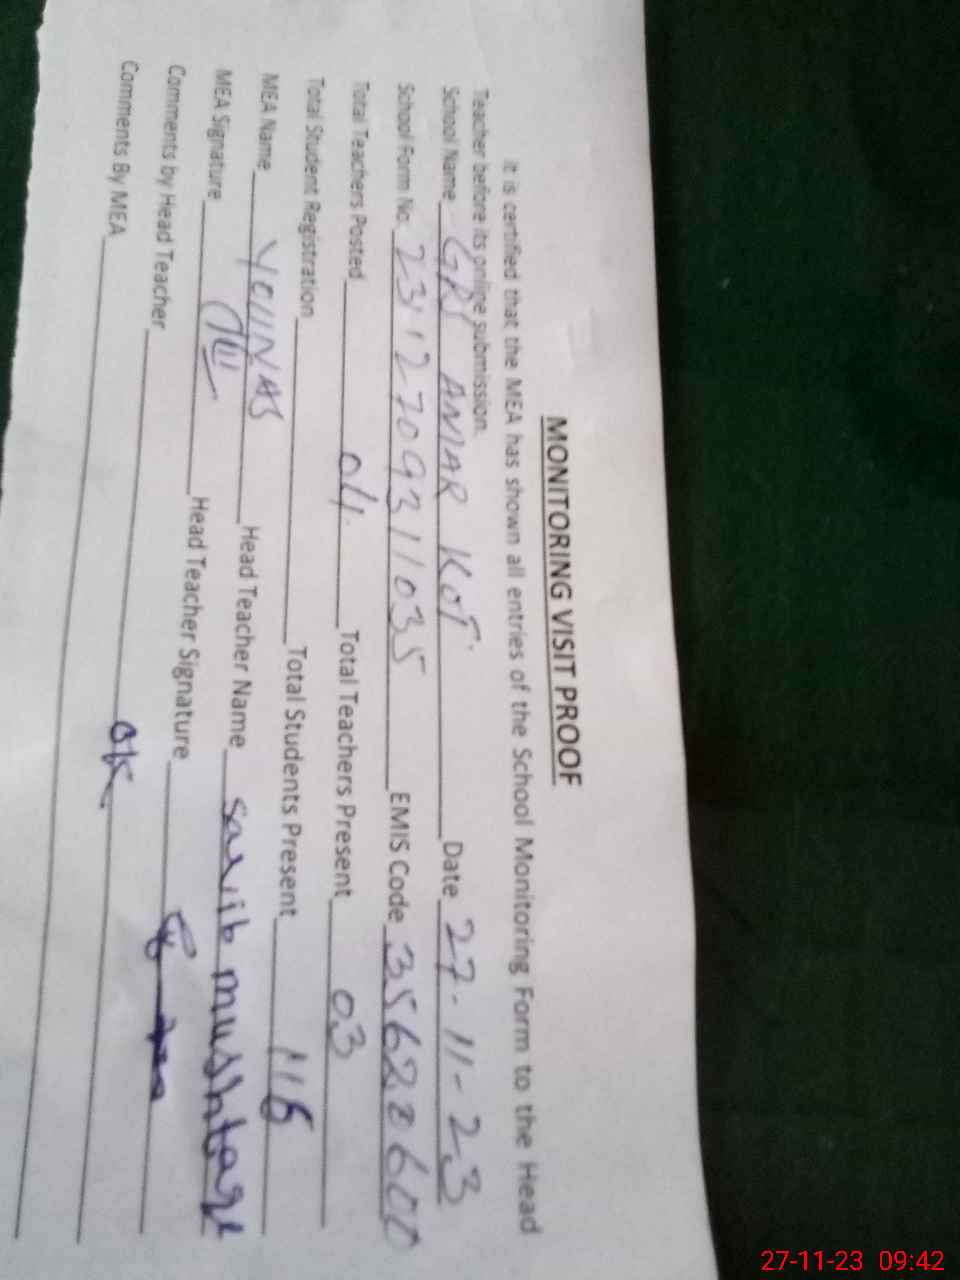 MONITORING VISIT PROOF
It is certified that the MEA has shown all entries of the School Monitoring Form to the Head
Teacher before its online submission.
School Name GPS AMAR KOT. Date 27-11-23
School Form No. 23112709311035 EMIS Code 35620600
Total Teachers Posted 04. Total Teachers Present 03
Total Student Registration Total Students Present 116
MEA Name YOUNAS Head Teacher Name mushtaq
MEA Signature Head Teacher Signature
Comments by Head Teacher ok
Comments By MEA
27-11-23 09:42